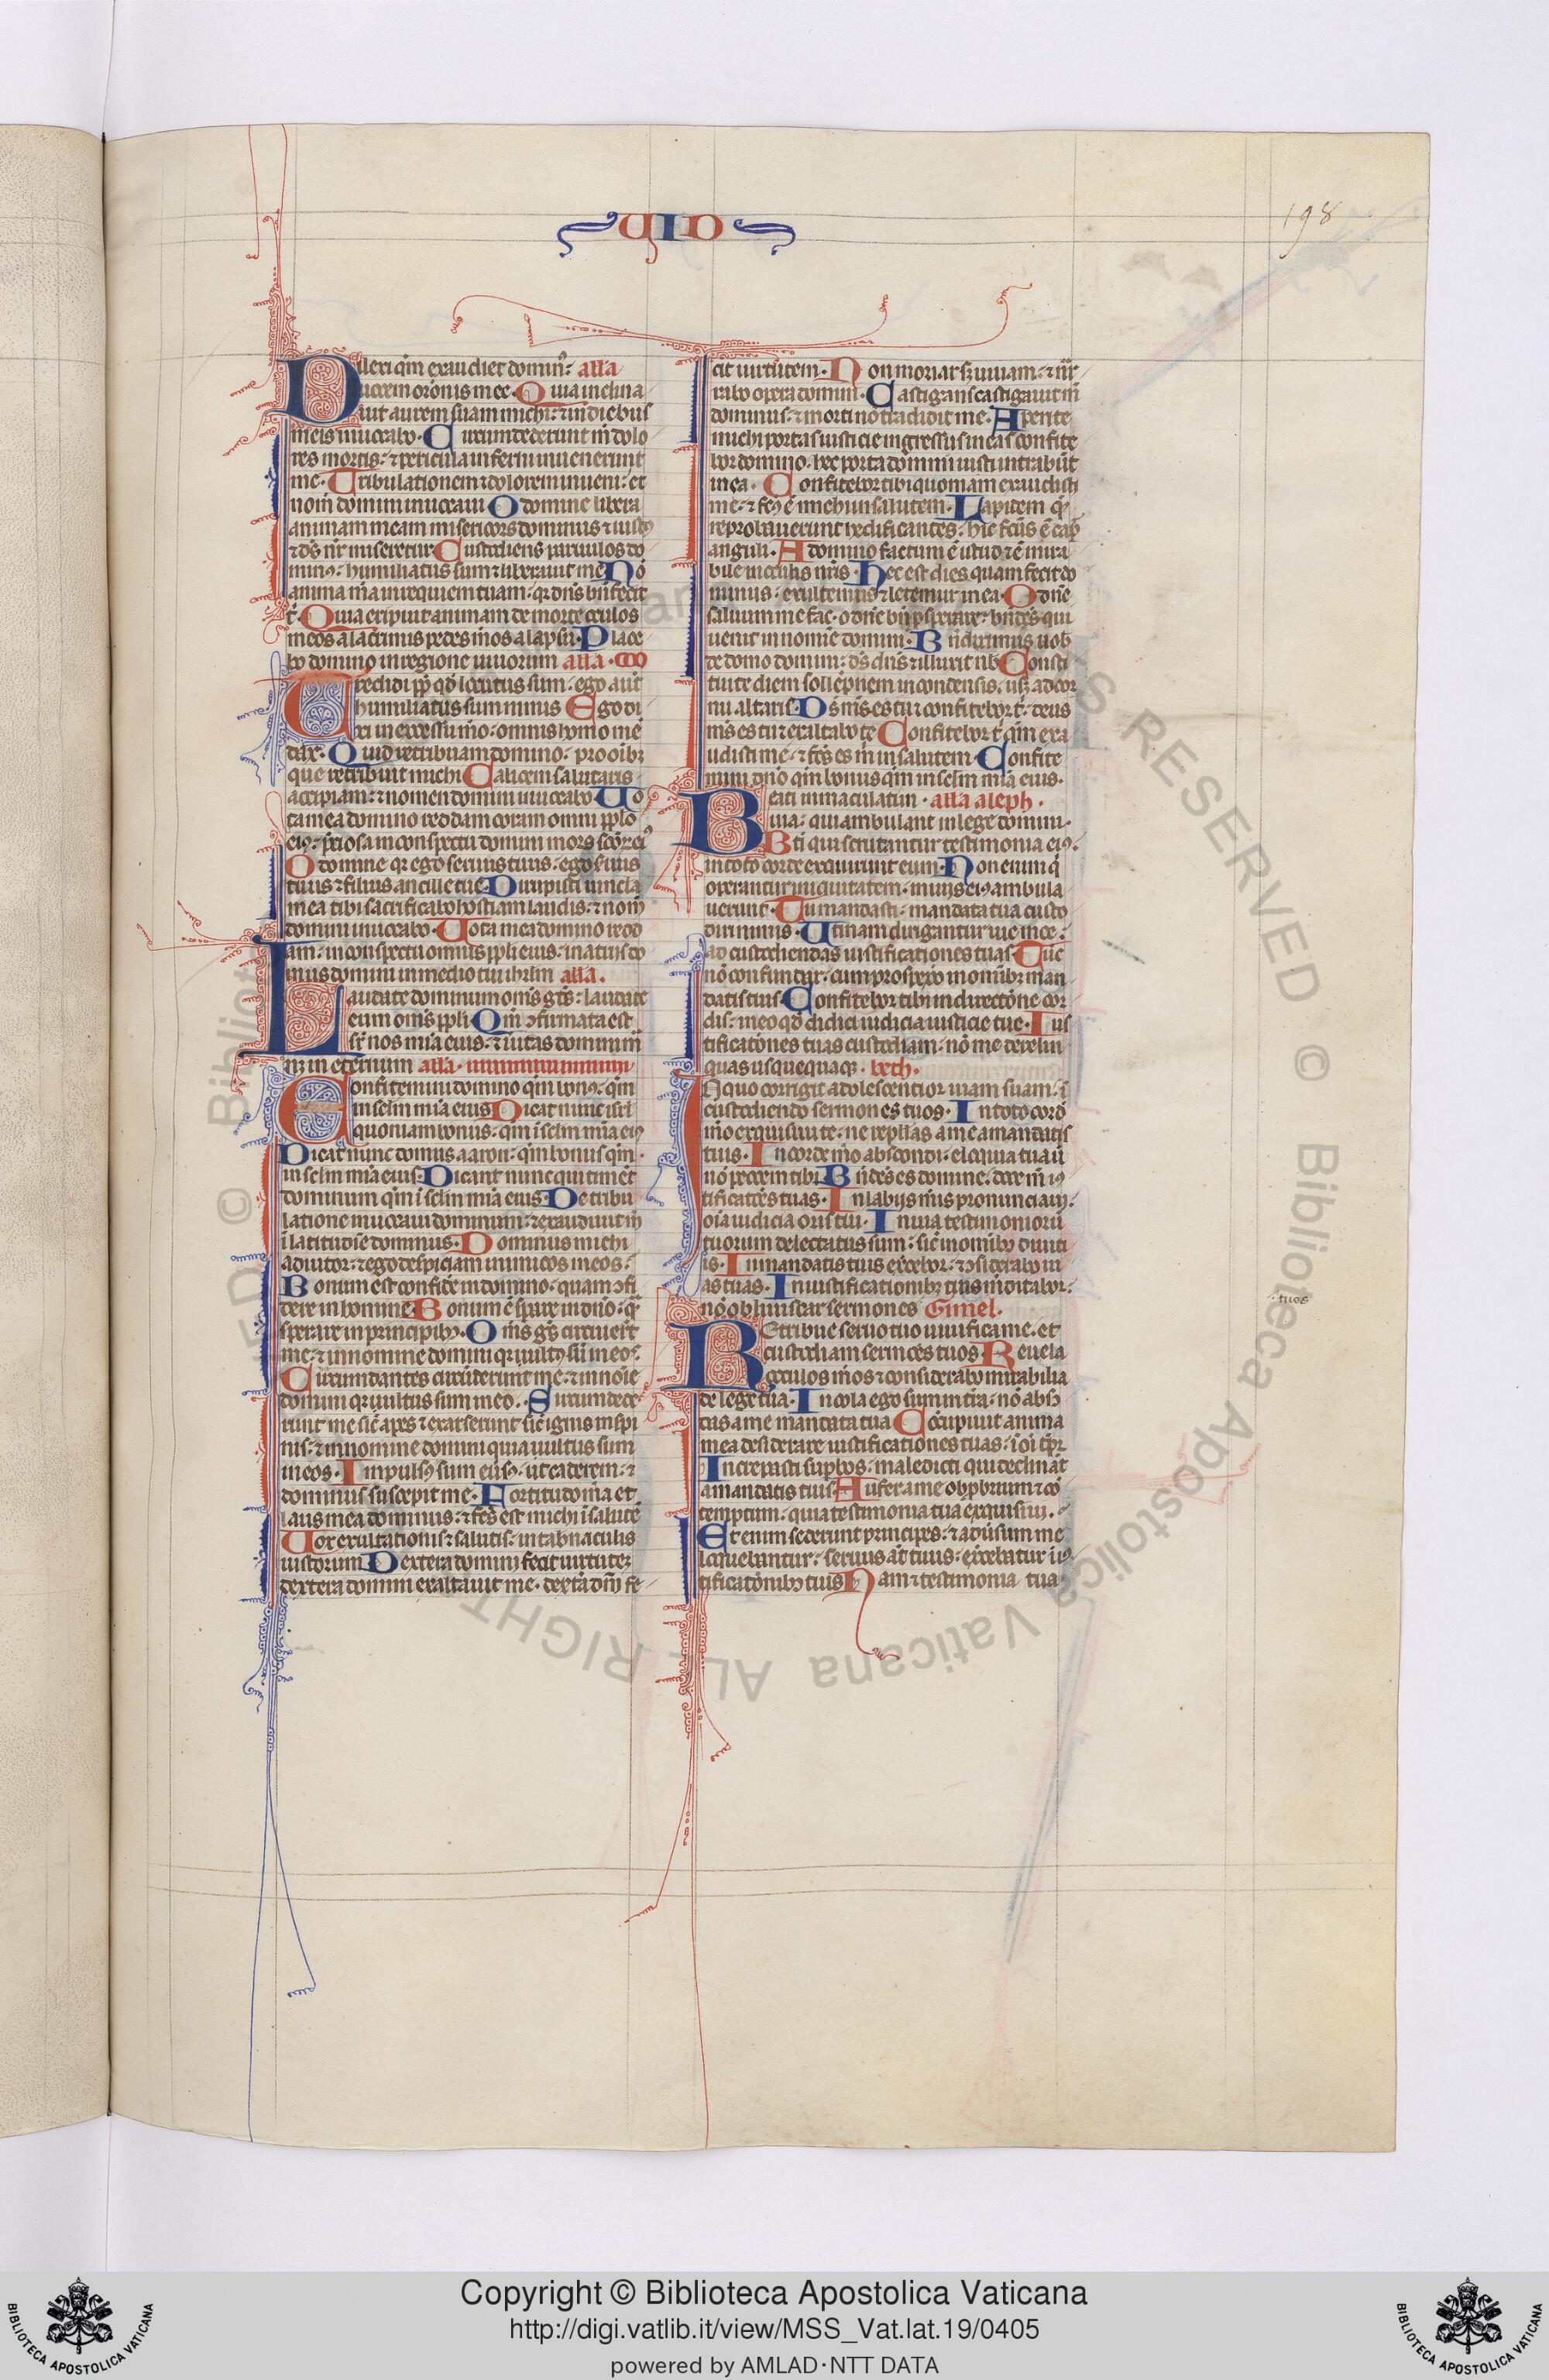 UID
198
Dilexi qm̄ exaudiet domin9: alla
uocem oronis mee. Quia inclina
uit aurem suam michi: ⁊ in diebus
meis inuocabo. Circumdederunt m̄ dolo
res mortis: ⁊ pericula inferni inuenerunt
me. Tribulationem ⁊ dolorem inueni: et
nom̄ domini inuocaui O domine libera
animam meam misericors dominus ⁊ iust9
⁊ ds̄ nr̄ miseretur Custodiens paruulos do
min9: humiliatus sum ⁊ liberauit me
anima mea in requiem tuam: qr dn̄s bn̄fecit
t̄. Quia eripuit animam de morte oculos
meos a lacrimis pedes meos a lapsu. Place
bo domino in regione uiuorum alla
Credidi pp̄ qd̄ locutus sum. ego aut̄
humiliatus sum nimis Ego di
xi in excessu mō: omnis homo me
dax. Quid retribuam domino: pro oib3
que retribuit michi Calicem salutaris
accipiam: ⁊ nomen domini inuocabo Uo
ta mea domino reddam coram omni pplo
ei9: p̄ciosa in conspectu domini mors scōr ei9
O domine qr ego seruus tuus: ego seruus
tuus ⁊ filius ancille tue. Dirupisti uincla
mea tibi sacrificabo hostiam laudis: ⁊ nom̄
domini inuocabo. Uota mea domino redd
am: in conspectu omnis ppli eius: in atriis do
mus domini in medio tui ihrlm alla.
Laudate dominum om̄s gt̄s: laudate
eum om̄s ppli Qm̄ ɔfirmata est
sr̄ nos mia eius: ⁊ ueritas domini m̄
in eternum alla
Confitemini domino qm̄ bon9: qm̄
in sclm mia eius Dicat nunc isrl
quoniam bonus: qm̄ i sclm mia ei9
Dicat nunc domus aaron: qm̄ bonus qm̄
in sclm mia eius. Dicant nunc qui timēt
dominum qm̄ i sclm mia eius. De tribu
latione inuocaui dominum: ⁊ exaudiuit m̄
i latitudīe dominus. Dominus michi
adiutor: ⁊ ego despiciam inimicos meos.
Bonum est confidere in domino: quam ɔfi
dere in homine Bonum ē sperare in dn̄o: q̄
sperare in principib9. Om̄s gt̄s circuierūt
me: ⁊ in nomine domini qr ultus sū in eos.
Circumdantes circūdederunt me: ⁊ in noīe
domini qr ultus sum in eo. Circumdede
runt me sic̄ apes ⁊ exarserunt sic̄ ignis in spi
nis: ⁊ in nomine domini quia ultus sum
in eos. Impuls9 sum euers9. ut caderem: ⁊
dominus suscepit me. Fortitudo mea et
laus mea dominus: ⁊ fcs̄ est michi i salutē
Uox exultationis: ⁊ salutis: in tabnaculis
iustorum Dextera domini fecit uirtute3
dextera domini exaltauit me. dextā dn̄i fe
cit uirtutem. Non moriar s3 uiuam: ⁊ nr̄
rabo opera domini. Castigans castigauit m̄
dominus: ⁊ morti nō tradidit me. Aperite
michi portas iusticie ingressus in eas confite
bor domino. hec porta domini iusti intrabūt
in ea. Confitebor tibi quoniam exaudisti
me: ⁊ fcs̄ es michi in salutem. Lapidem q̄
reprobauerunt edificantes: hic fcūs ē cap̄
anguli. A domino factum ē istud: ⁊ ē mira
bile in oculis nr̄is. Hec est dies quam fecit do
minus: exultem9 ⁊ letemur in ea. O dn̄e
saluum me fac. o dn̄e bn̄ prosperare: bn̄dc̄s qui
uenit in nomine domini. Bn̄diximus uob̄
de domo domini: ds̄ dn̄s ⁊ illuxit nb̄ Consti
tuite diem sollēpnem in condensis. us3 ad cor
nu altaris. Ds̄ ms̄ es tu ⁊ confitebor t̄. deus
ms̄ es tu ⁊ exaltabo te Confitebor t̄ qm̄ exa
udisti me: ⁊ fcs̄ es m̄ in salutem. Confite
mini dn̄o qm̄ bonus qm̄ in sclm mia eius.
Beati inmaculati in. alla aleph.
uia: qui ambulant in lege domini.
Bt̄i qui scrutantur testimonia ei9:
in toto corde exquirunt eum. Non enim q̄
operantur iniquitatem. in uiis ei9 ambula
uerunt. Tu mandasti: mandata tua custo
diri nimis. Utinam dirigantur uie mee:
ad custodiendas iustificationes tuas Tūc
nō confundar: cum prospexō in omib3 man
datis tuis. Confitebor tibi in directōne cor
dis: in eo qd̄ didici iudicia iusticie tue. Ius
tificatōnes tuas custodiam: nō me derelin
quas usquequaq3. beth.
In quo corrigit adolescentior uiam suam: ī
custodiendo sermones tuos. In toto cord̄
mō exquisiui te: ne repellas a me a mandatis
tuis. In corde mō abscondi: eloquia tua ū
nō peccem tibi Bn̄dc̄s es domine. doce m̄ i9
tificatōes tuas. In labijs ms̄ pronunciaui:
oīa iudicia oris tui. In uia testimoniorū
tuorum delectatus sum: sic̄ in omib9 diuiti
is. In mandatis tuis exercebor: ⁊ ɔsiderabo ui
as tuas. In iustificationib3 tuis meditabor:
nō obliuiscar sermones Gimel.
tuos
Retribue seruo tuo uiuifica me. et
custodiam sermones tuos. Reuela
oculos meos ⁊ considerabo mirabilia
de lege tua. Incola ego sum in tra. nō absɔ̄
das a me mandata tua Concupiuit anima
mea desiderare iustificationes tuas: ī oī tp̄r
Increpasti supbos: maledicti qui declināt
a mandatis tuis Aufer a me obpbrium ⁊ cō
temptum: quia testimonia tua exquisiui.
Etenim sederunt principes: ⁊ aduersum me
loquebantur: seruus at̄ tuus: exercebatur i i9
tificatōnib9 tuis Nam ⁊ testimonia tua
Copyright © Biblioteca Apostolica Vaticana
http://digi.vatlib.it/view/MSS_Vat.lat.19/0405
powered by AMLAD·NTT DATA
BIBLIOTECA APOSTOLICA VATICANA
BIBLIOTECA APOSTOLICA VATICANA